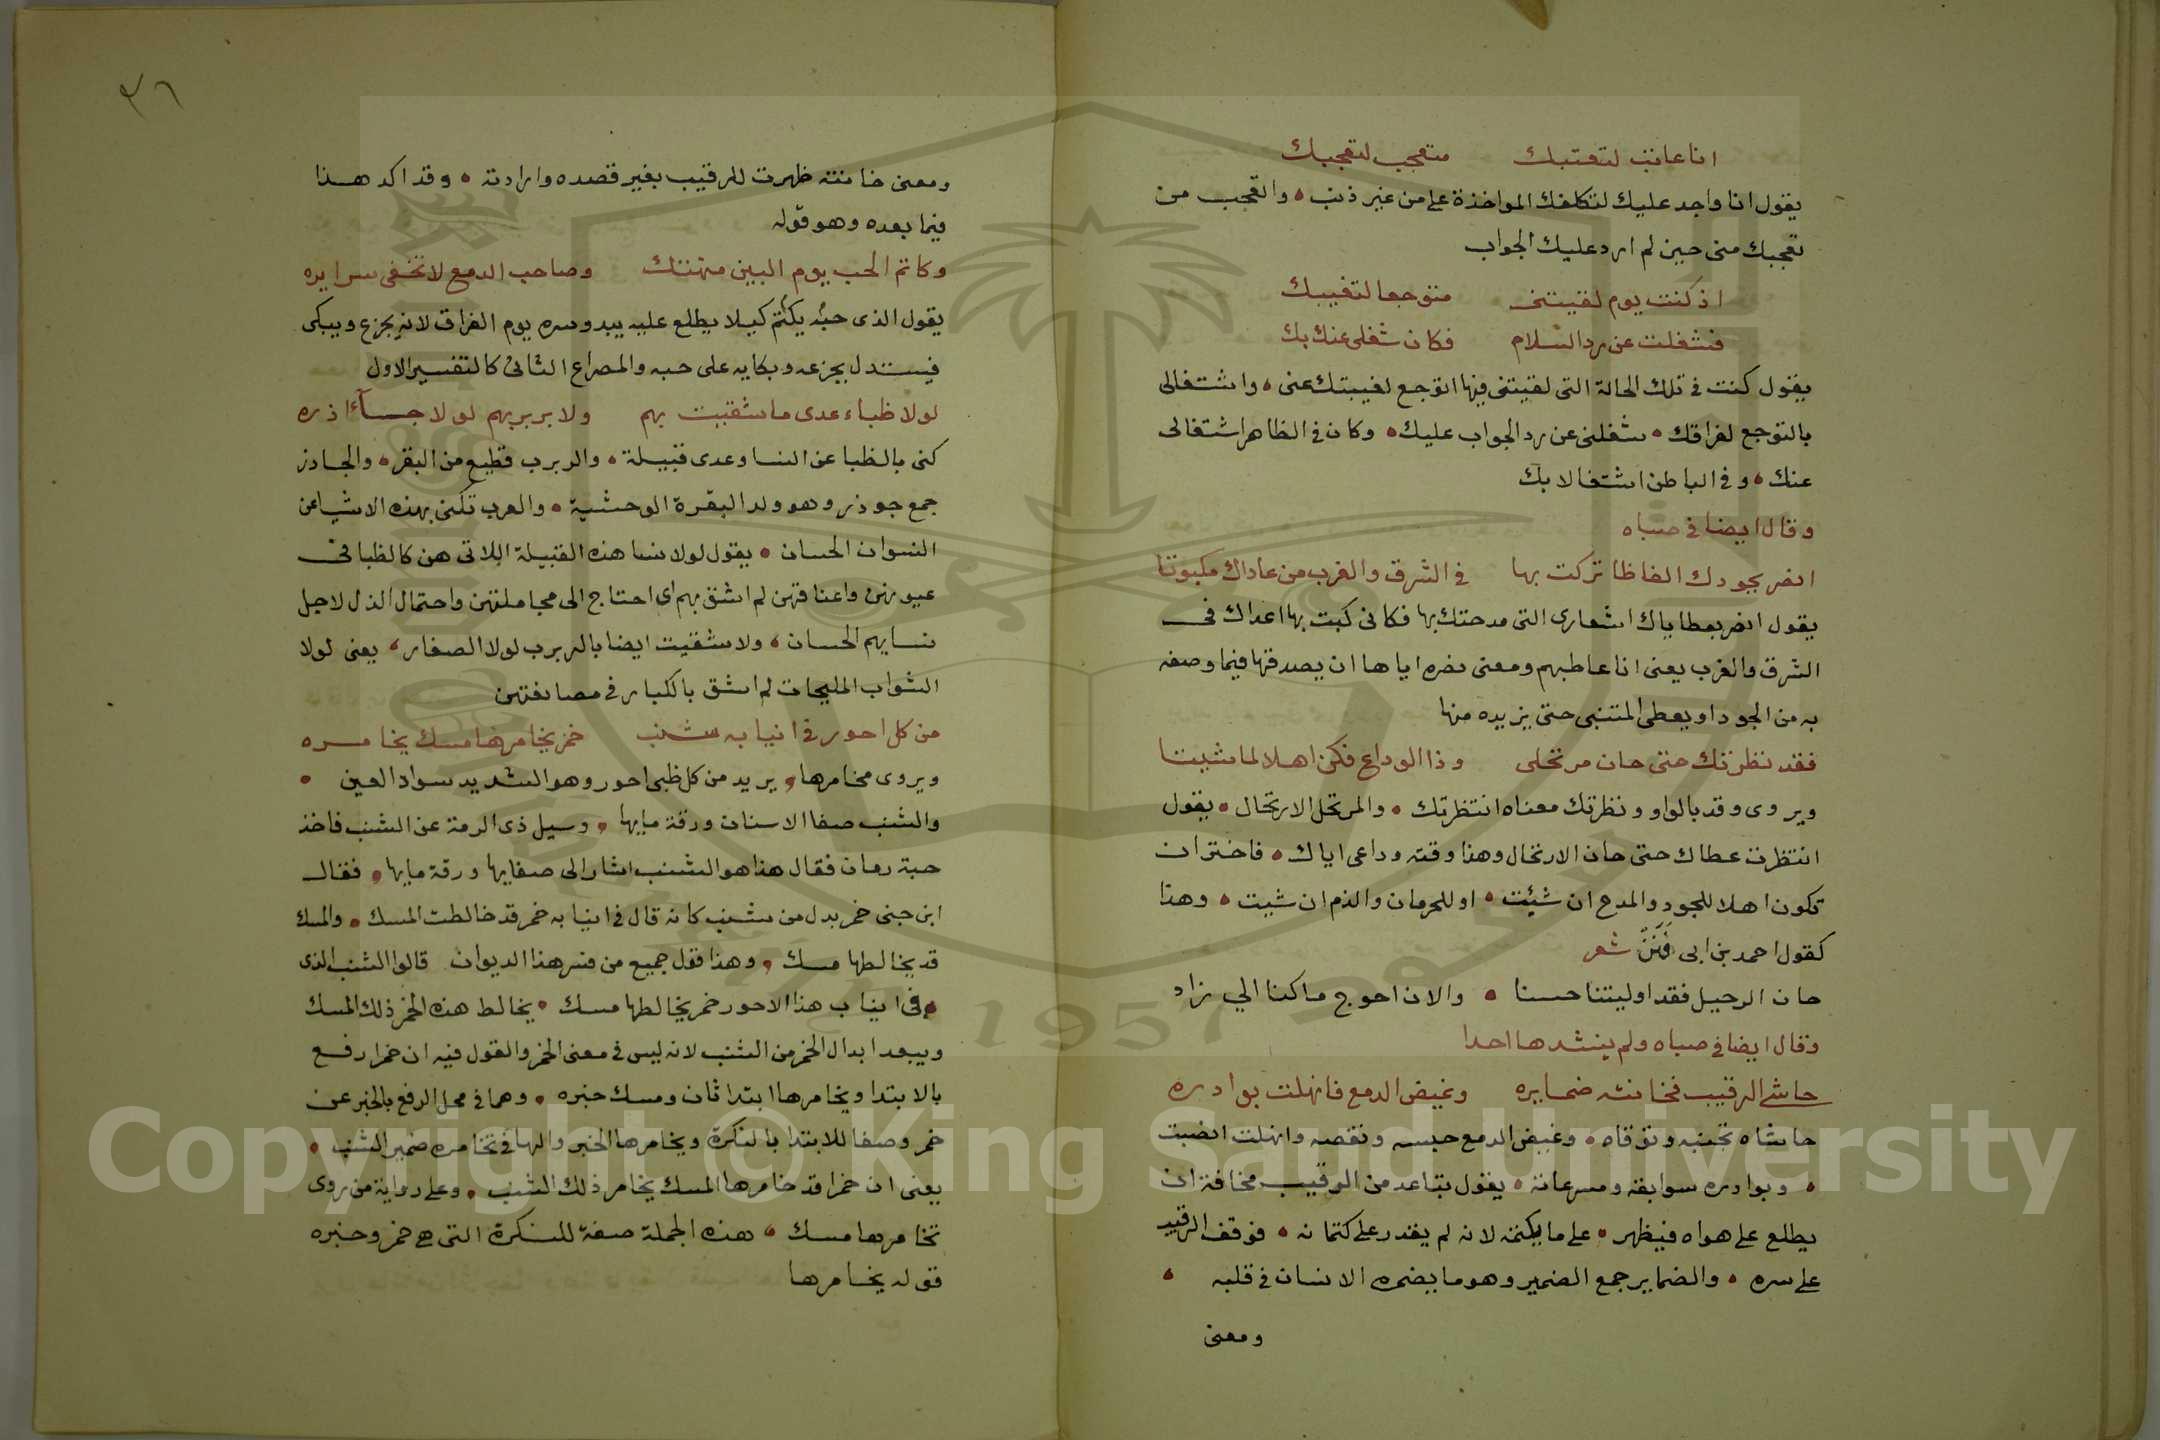 انا عاتب لتعتبك متعجب لتعجبك
يقول انا واجد عليك لتكلفك المواخذة علي من غير ذنب والتعجب من
تعجبك مني حين لم ارد عليك الجواب
اذ كنت يوم لقيتني متوجعا لتغيبك
فشغلت عن رد السلام فكان شغلي عنك بك
يقول كنت في تلك الحالة التي لقيتني فيها اتوجع لغيبتك عني واشتغالي
بالتوجع لفراقك شغلني عن رد الجواب عليك وكان في الظاهر اشتغالي
عنك وفي الباطن اشتغالا بك
وقال ايضا في صباه
انصر بجودك الفاظا تركت بها في الشرق والغرب من عاداك مكبوتا
يقول انصر بعطاياك اشعاري التي مدحتك بها فكاني كبت بها اعداك في
الشرق والغرب يعني انا عاطبهم ومعنى نصره اياها ان يصدقها فيما وصفه
به من الجود او يعطي المتنبي حتى يزيده منها
فقد نظرتك حتى حان مرتحلي وذا الوداع فكن اهلا لما شيتا
ويروى وقد بالواو ونظرتك معناه انتظرتك والمرتحل الارتحال يقول
انتظرت عطاك حتى حان الارتحال وهذا وقت وداعي اياك فاختر ان
تكون اهلا للجود والمدح ان شئت او للحرمان والذم ان شيت وهذا
كقول احمد بن ابي فَنَنٌ شعر
حان الرحيل فقد اوليتنا حسنا والان احوج ما كنا الي زاد
وقال ايضا في صباه ولم ينشدها احدا
حاشى الرقيب فخانته ضمايره وغيض الدمع فانهلت بوادره
حاشاه تجنبه وتوقاه وغيض الدمع حبسه ونقصه وانهلت انصبت
وبوادره سوابقه ومسرعاته يقول تباعد من الرقيب مخافة ان
يطلع على هواه فيظهر على ما يكتمه لانه لم يقدر على كتمانه فوقف الرقيب
على سره والضماير جمع الضمير وهو ما يضمره الانسان في قلبه
ومعنى
٣٦
ومعنى خانته ظهرت للرقيب بغير قصده وارادته وقد اكد هذا
فيما بعده وهو قوله
وكاتم الحب يوم البين منهتك وصاحب الدمع لا تخفى سرايره
يقول الذي حبُّه يكتم كيلا يطلع عليه يبدو سره يوم الفراق لانه يجزع ويبكي
فيستدل بجزعه وبكايه على حبه والمصراع الثاني كالتفسير الاول
لولا ظباء عدى ما شقيت بهم ولا بربربهم لولا جآذره
كنى بالظبا عن النسا وعدى قبيلة والربرب قطيع من البقر والجاذر
جمع جوذر وهو ولد البقرة الوحشية والعرب تكني بهذه الاشيا عن
النسوان الحسان يقول لولا نسا هذه القبيلة اللاتي هن كالظبا في
عيونهن واعناقهن لم اشق بهم اي احتاج الى مجاملتهن واحتمال الذل لاجل
نسايهم الحسان ولا شقيت ايضا بالربرب لولا الصغار يعني لولا
الشواب المليحات لم اشق بالكبار في مصانعتهن
من كل احور في انيابه شنب خمر يخامرها مسك يخامره
ويروى مخامرها يريد من كل ظبي احور وهو الشديد سواد العين
والشنب صفا الاسنان ورقة مايها وسيل ذي الرمة عن الشنب فاخذ
حبة رمان فقال هذا هو الشنب اشار الى صفايها ورقة مايها فقال
ابن جني خمر بدل من شنب كانه قال في انيابه خمر قد خالطت المسك والمسك
قد يخالطها مسك وهذا قول جميع من فسر هذا الديوان قالوا الشنب الذي
في انياب هذا الاحور خمر يخالطها مسك يخالط هذه الخمر ذلك المسك
ويبعد ابدال الخمر من الشنب لانه ليس في معنى الخمر والقول فيه ان خمرا رفع
بالابتدا ويخامرها ابتدا ثان ومسك خبره وهما في محل الرفع بالخبر عن
خمر وصفا للابتدا بالنكرة ويخامرها الخبر والها في تخامره ضمير الشنب
يعني ان خمرا قد خامرها المسك يخامر ذلك الشنب وعلى رواية من روى
تخامرها مسك هذه الجملة صفة للنكرة التي هي خمر وخبره
قوله يخامرها
Copyright © King Saud University
1957